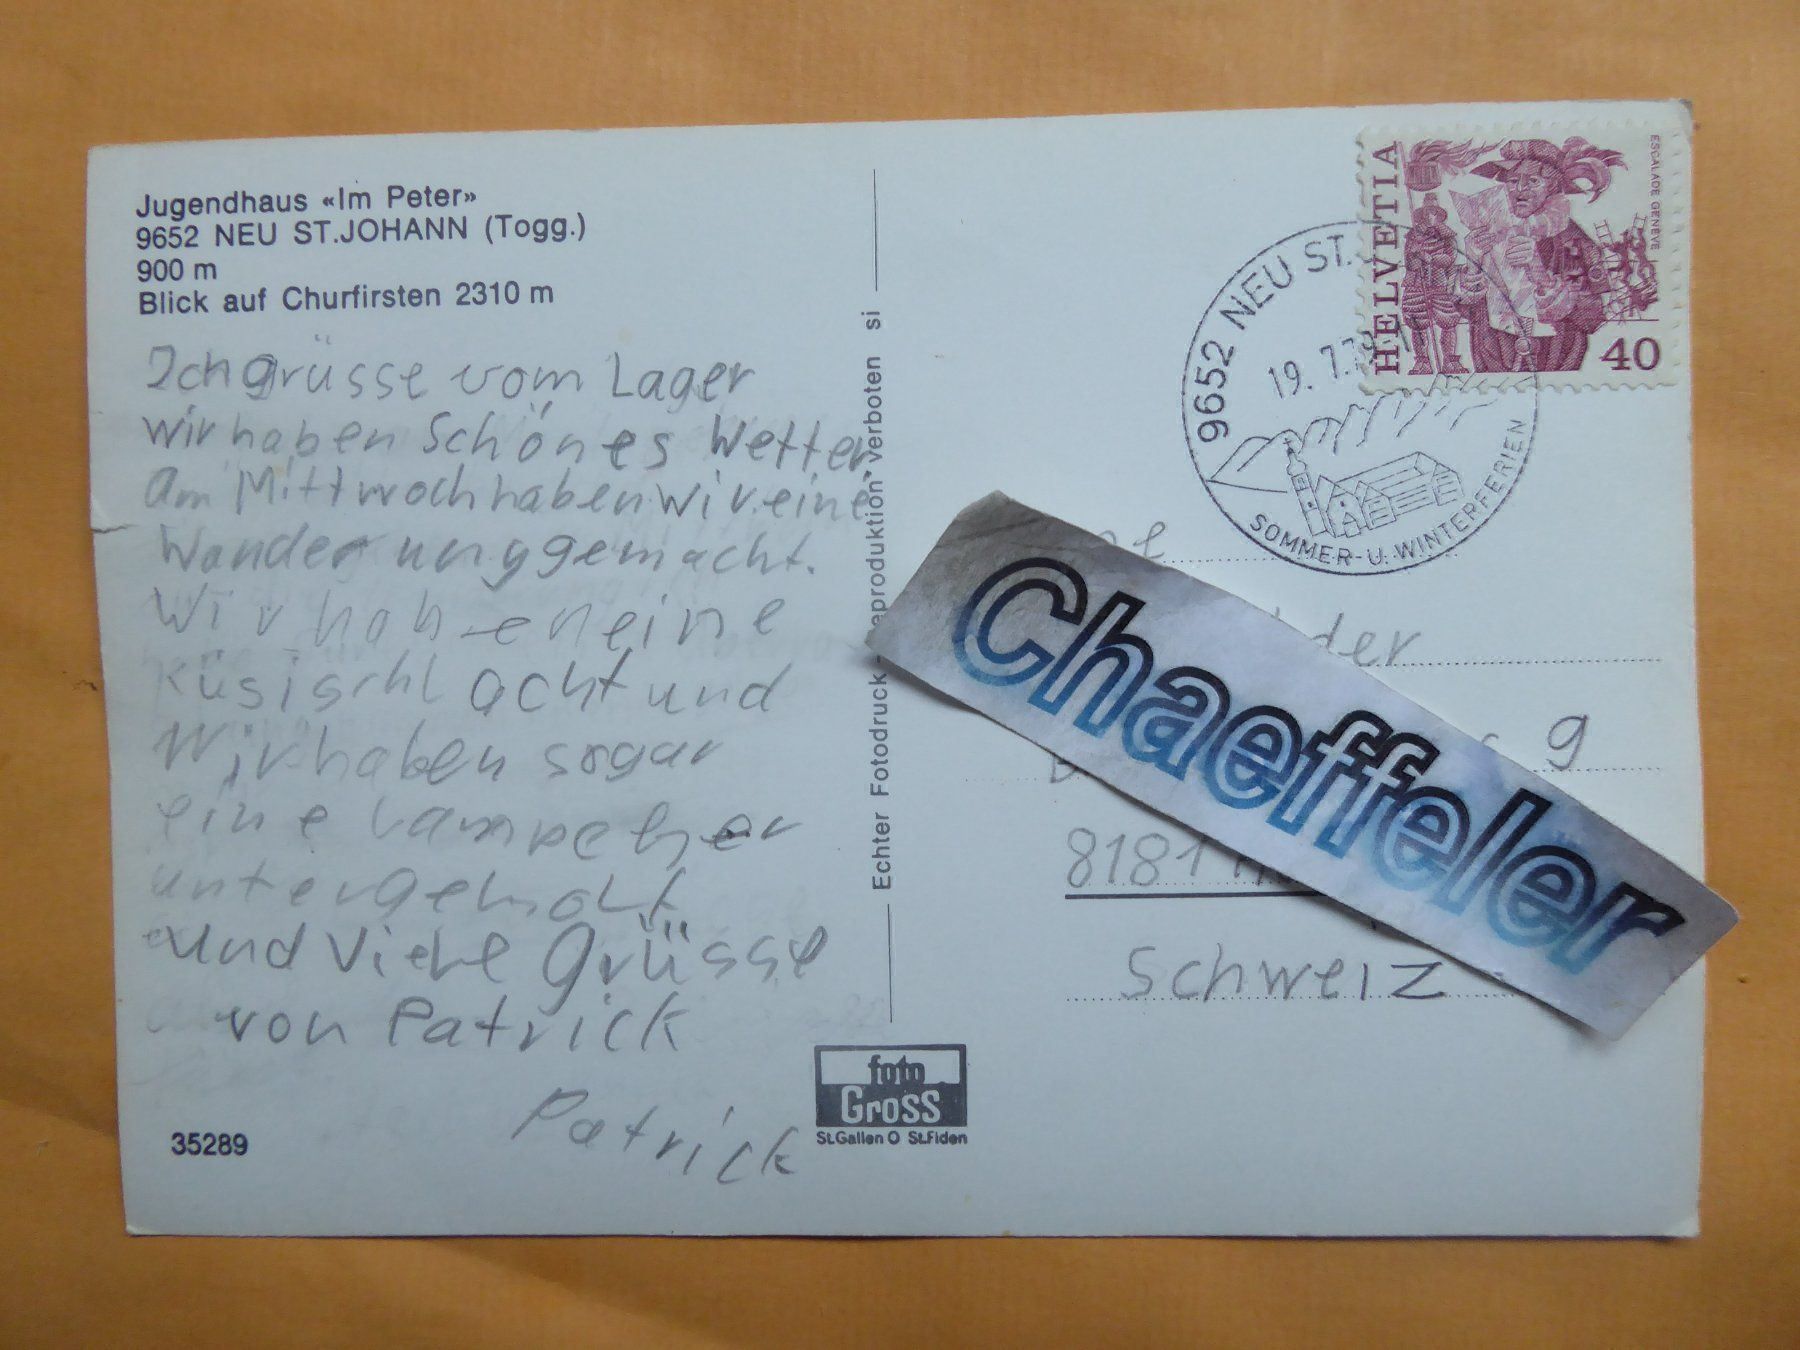 Jugendhaus «Im Peter»
9652 NEU ST.JOHANN (Togg.)
900 m
Blick auf Churfirsten 2310 m
Ich grüsse vom Lager
wir haben Schönes Wetter
Am Mittwoch haben wir eine
Wanderung gemacht.
Wir haben eine
küsischl acht und
Wir haben sogar
eine
und viele Grüsse
von Patrick
Patrick
35289
Echter Fotodruck - eproduktion verboten si
foto
Gross
St.Gallen O St.Fiden
HELVETIA
ESCALADE GENEVE
40
9652 NEU ST.
19. 7.79
SOMMER- U. WINTERFERIEN
der
g
8181
Schweiz
Chaeffeler